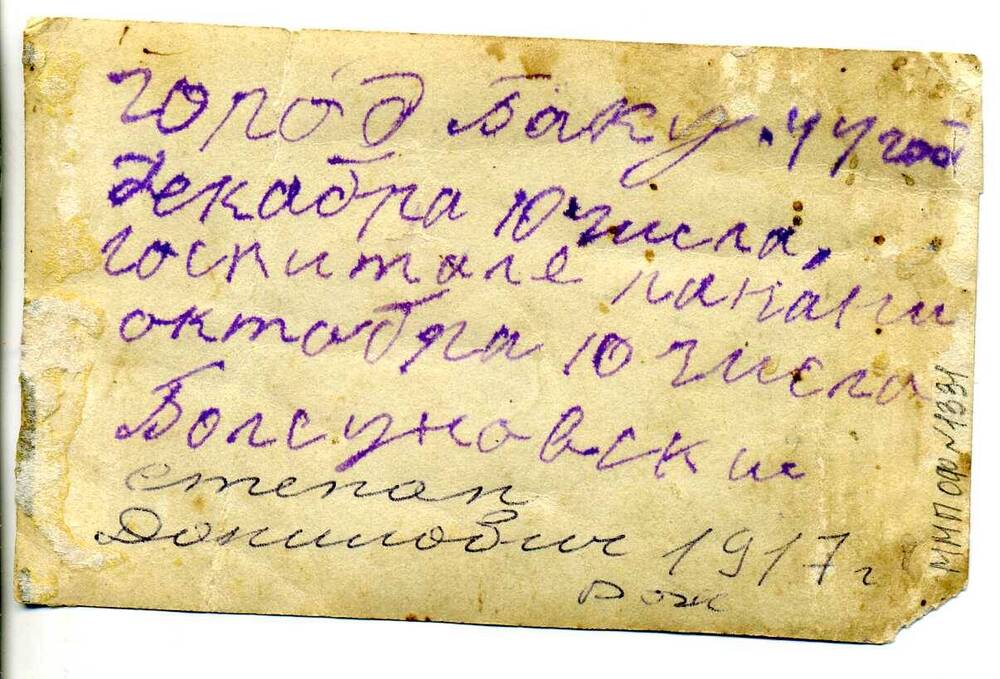 город Баку. 44 год
Декабра 10 числа,
госпитале ранани
октобра 10 число
Болсуновски
степан
Донилович 1917 г
рож
ММП ОФ №1331